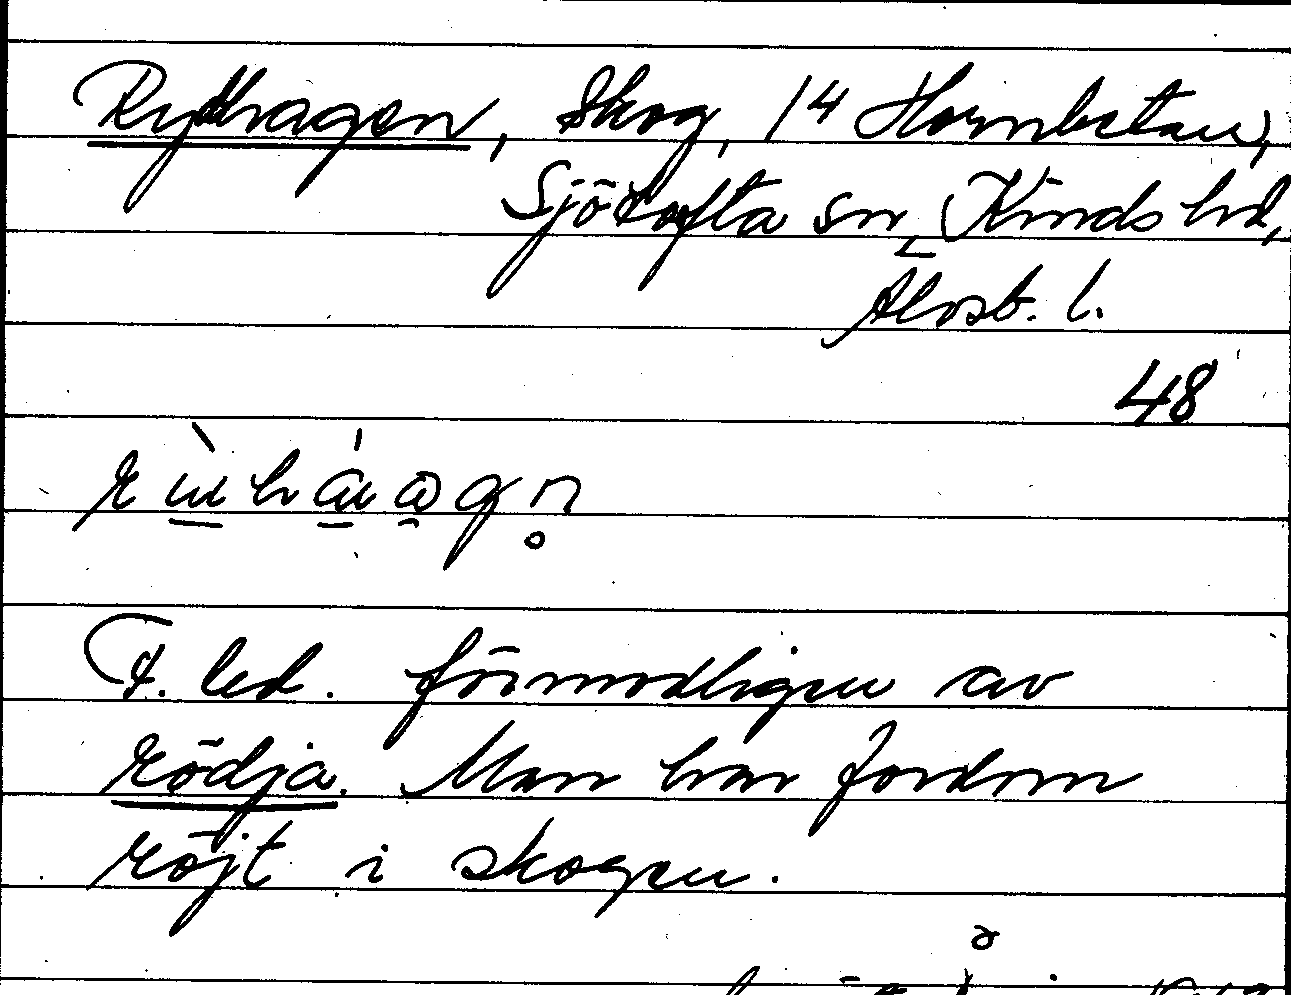 Rydhagen, skog, 14 Hornbetan,
Sjötofta sn, Kinds hd,
Älvsb. l.
48
F. led. förmodligen av
rödja. Man har fordom
röjt i skogen.